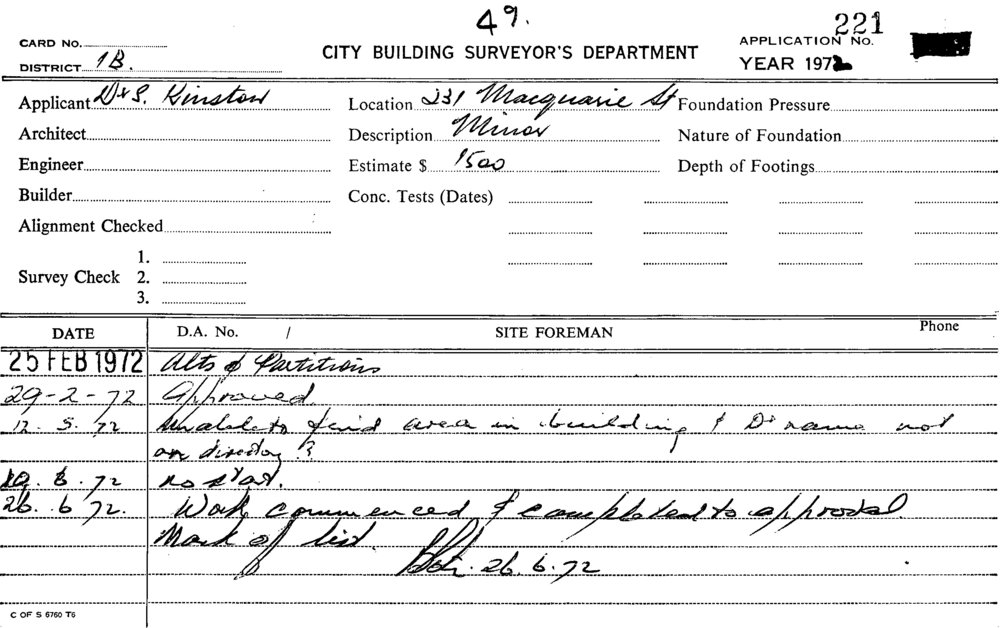 49.
221
CARD No.
CITY BUILDING SURVEYOR'S DEPARTMENT
APPLICATION No.
DISTRICT 1B.
YEAR 1972
Applicant Dr S. Kinston Location 231 Macquarie St Foundation Pressure
Architect Description Minor Nature of Foundation
Engineer Estimate $ 1500 Depth of Footings
Builder Conc. Tests (Dates)
Alignment Checked
1.
Survey Check 2.
3.
DATE D.A. No. / SITE FOREMAN Phone
25 FEB 1972 Alts & Partitions
29-2-72 Approved
12. 5. 72 Unable to find area in building & Dr name not
on directory ?
19. 6. 72 no start.
26. 6 72. Work commenced & completed to approval
Mark off list.
26. 6. 72
C OF S 6760 T6